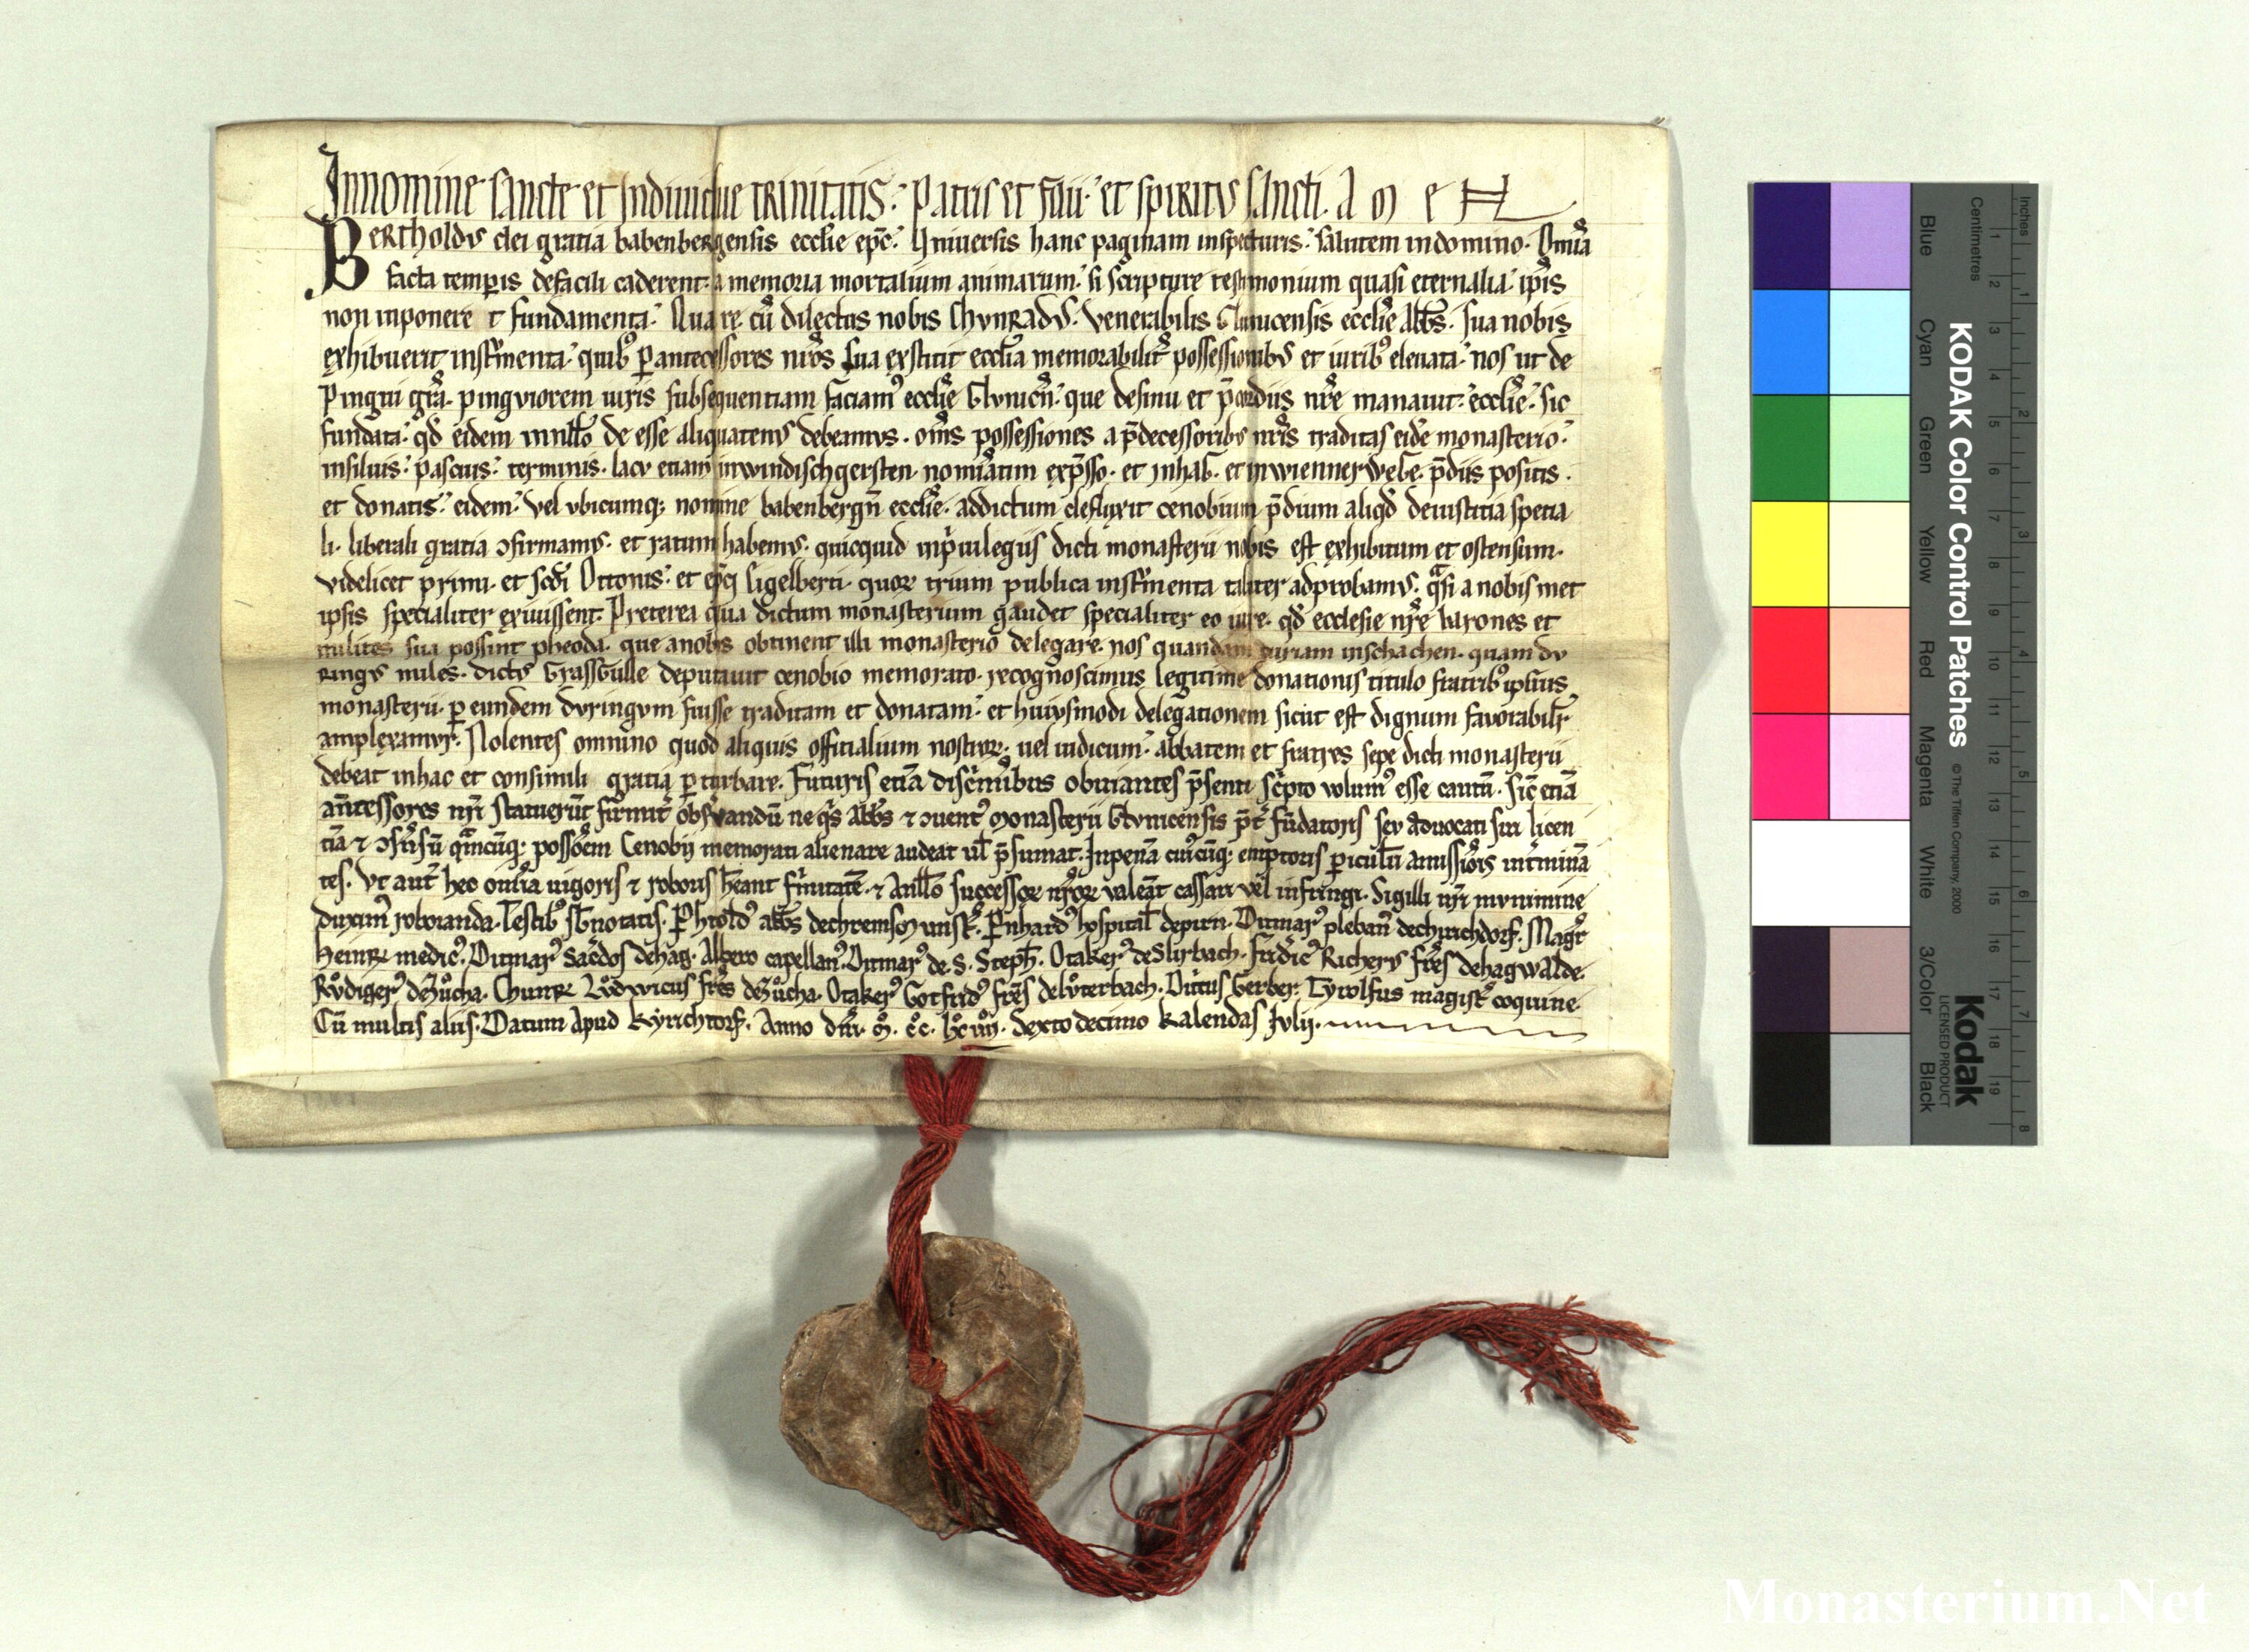 Jn nomine sancte et individue trinitatis. patris et filii. et spiritus sancti. A m e n
Bertholdus dei gratia babenbergensis ecclie epc. Vniversis hanc paginam inspecturis. salutem in domino. Omia
facta temporis de facili caderent a memoria mortalium animarum. si scripture testimonium quasi eternalia ipis
non inponeret fundamenta. Quare cu dilectus nobis Chvnradus. venerabilis Glunicensis ecclie Abbs. sua nobis
exhibuerit instrmenta. quib per antecessores nros sua exstitit ecclia memorabilit possessionibus et iurib eleuata. nos ut de
pingui gra. pinguiorem iuris subsequentiam faciam ecclie Glunicn. que de sinu et pordiis nre manauit ecclie. sic
fundata. qd eidem in nullo de esse aliquatenus debeamus. oms possessiones a pdecessoribus nris traditas eide monasterio.
in siluis. pascuis. terminis. lacu etiam in windischgersten. nomiatim expsso. et in hab. et in wiennerwege. pdiis positis.
et donatis. eidem. vel ubicumq; nomine babenbergn ecclie. ad dictum defluxit cenobium pdium aliqd de iustitia spetia
li. liberali gratia ɔfirmamus. et ratum habemus. quicquid in puilegiis dicti monasterii nobis est exhibitum et ostensum.
videlicet primi. et scdi Ottonis. et epci Sigelberti. quor trium publica instrmenta taliter adprobamus. qasi a nobis met
ipsis specialiter exiuissent. Preterea qua dictum monasterium gaudet specialiter eo iure. qd ecclesie nre barones et
milites sua possint pheoda. que a nobis obtinent illi monasterio delegare. nos quandam curiam in schachen. quam du
ringus miles. dictus Grassgulle deputauit cenobio memorato. recognoscimus legitime donationis titulo fratrib ipsius
monasterii. per eundem duringum fuisse traditam et donatam. et huiusmodi delegationem sicut est dignum fauorabilr
amplexamur. Nolentes omnino quod aliquis offitialium nostror. uel iudicum. abbatem et fratres sepe dicti monasterii
debeat in hac et consimili gratia perturbare. Futuris etia discminibus obuiantes psenti scpto volum esse cautu. sic etia
antecessores nri statuerut firmit obsvandu ne qs Abbs ⁊ ɔuent monasterii Glunicensis pt fudatoris seu aduocati sui licen
tia ⁊ ɔsensu qmcuq; possoem Cenobii memorati alienare audeat ul psumat. In pena cuicuq; emptoris piculu amissiois intmina
tes. Vt aut hec omia uigoris ⁊ roboris heant firmitate. ⁊ A nullo successor nror valeat cassari vel infringi. Sigilli nri munimine
duxim roboranda. Testib sbnotatis. Phtold abbs de chremsmunstr. Pnhard hospital de pirn. Ditmar pleban de chirichdorf. Magr
Heinr medic. Ditmar sacdos de hag. Albero capellan. Ditmar de. S. Steph. Otaker de Slirbach. Fridic Richerus fres de hagwalde.
Rudiger de Zucha. Chunr Ludwicus fres de Zucha. Otaker Gotfrid fres de luterbach. Dittus Gerber. Tyrolfus magist coquine.
Cu multis aliis. Datum Apud Kyrichtorf. Anno dni. M. CC. LXIIII. Sexto decimo kalendas Iulii.
Inches
Centimetres
KODAK Color Control Patches
© The Tiffen Company, 2000
Kodak
LICENSED PRODUCT
Blue
Cyan
Green
Yellow
Red
Magenta
White
3/Color
Black
1 2 3 4 5 6 7 8 9 10 11 12 13 14 15 16 17 18 19
1 2 3 4 5 6 7 8
Monasterium.Net